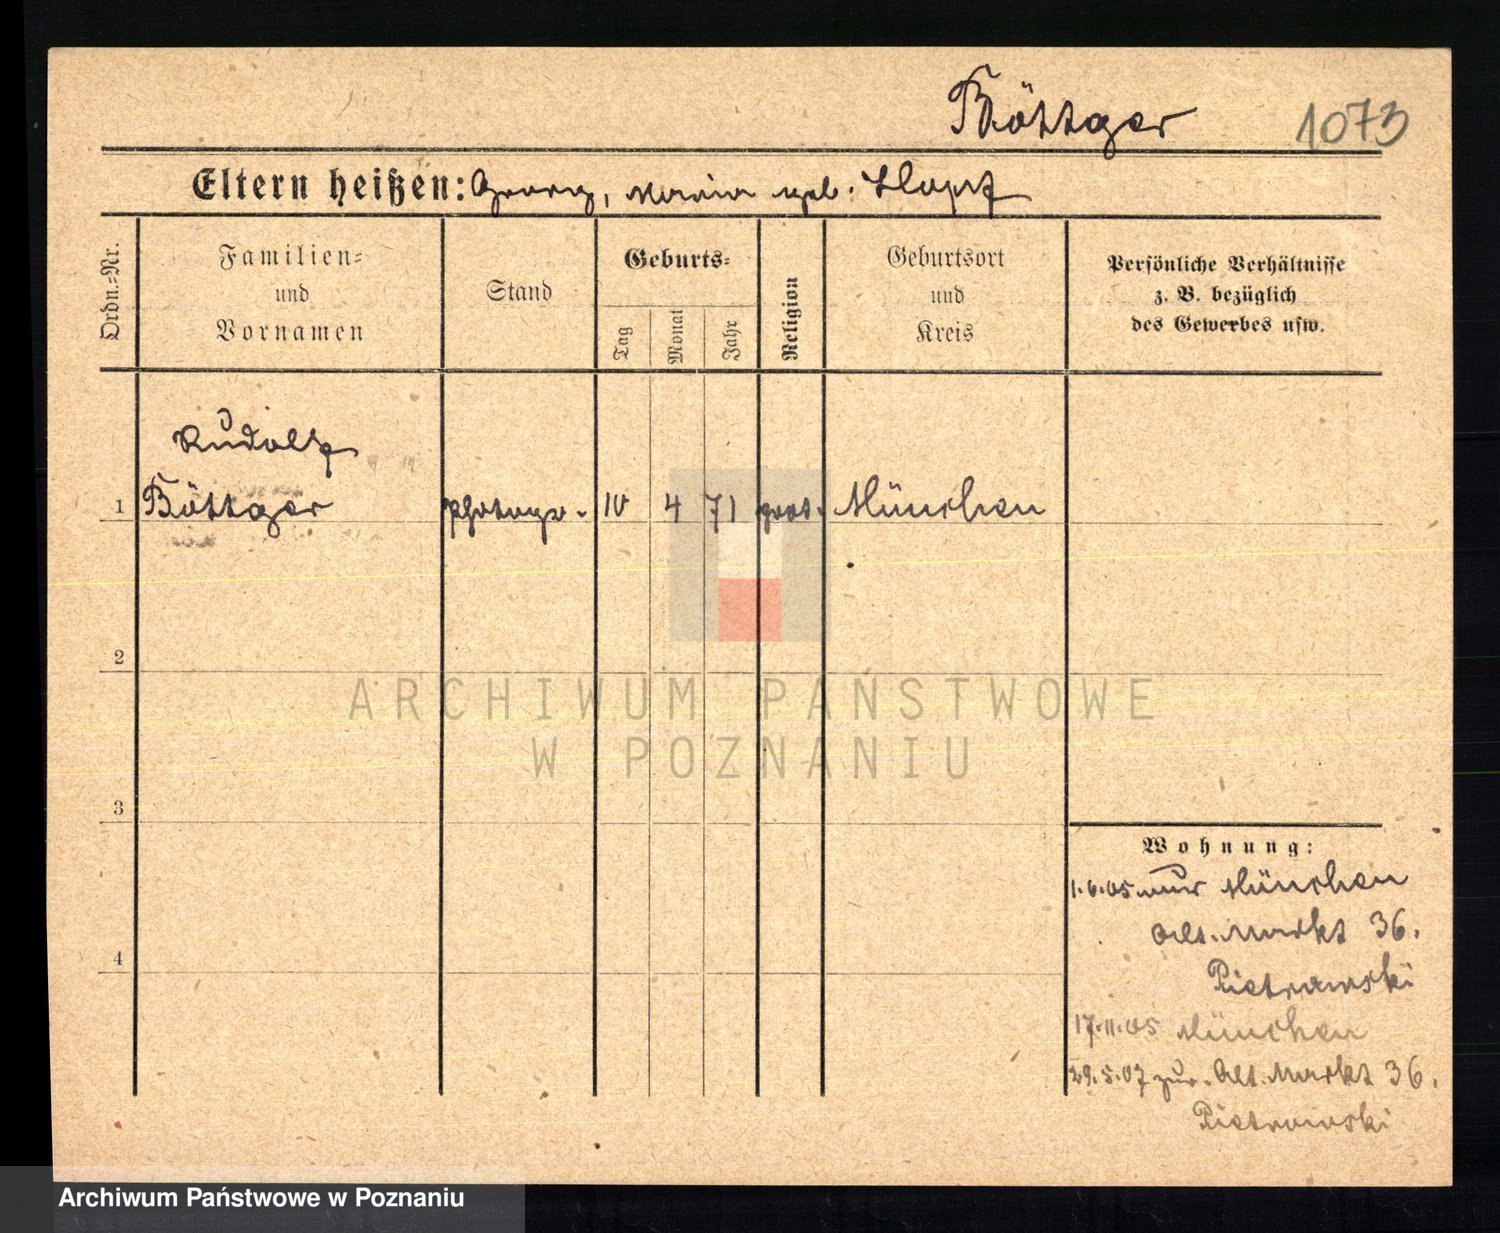 Böttger 1073
Eltern heißen: Georg, Maria geb. Klopf
Ordn.-Nr.
Familien-
und
Vornamen
Stand
Geburts-
Tag
Monat
Jahr
Religion
Geburtsort
und
Kreis
Persönliche Verhältnisse
z. B. bezüglich
des Gewerbes usw.
Rudolf
1 Böttger photogr. 10 4 71 prot. München
2
3
4
ARCHIWUM PAŃSTWOWE
W POZNANIU
Wohnung:
1.6.05 München
Alt. Markt 36.
Pietrowski
17.11.05 München
29.5.07 zur. Alt. Markt 36.
Pietrowski
Archiwum Państwowe w Poznaniu